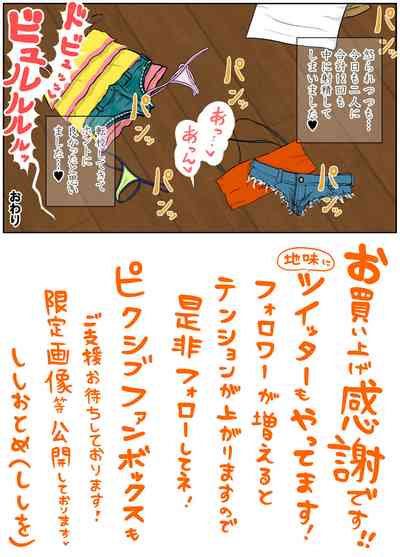 怒られつつも…
今日も二人に
合計12回も
中に射精して
しまいました…♥
パンッ
パンッ
パンッ
パンッ
パンッ
あっ…♥
あっん♥
転校してきて
ホントに
良かったと思い
ました…♥
ドビュッ
ビュルルルルッ
おわり
お買い上げ感謝です!!
地味に
ツイッターもやってます!
フォロワーが増えると
テンションが上がりますので
是非フォローしてネ!
ピクシブファンボックスも
ご支援お待ちしております!
限定画像等公開しております
ししおとめ(ししを)